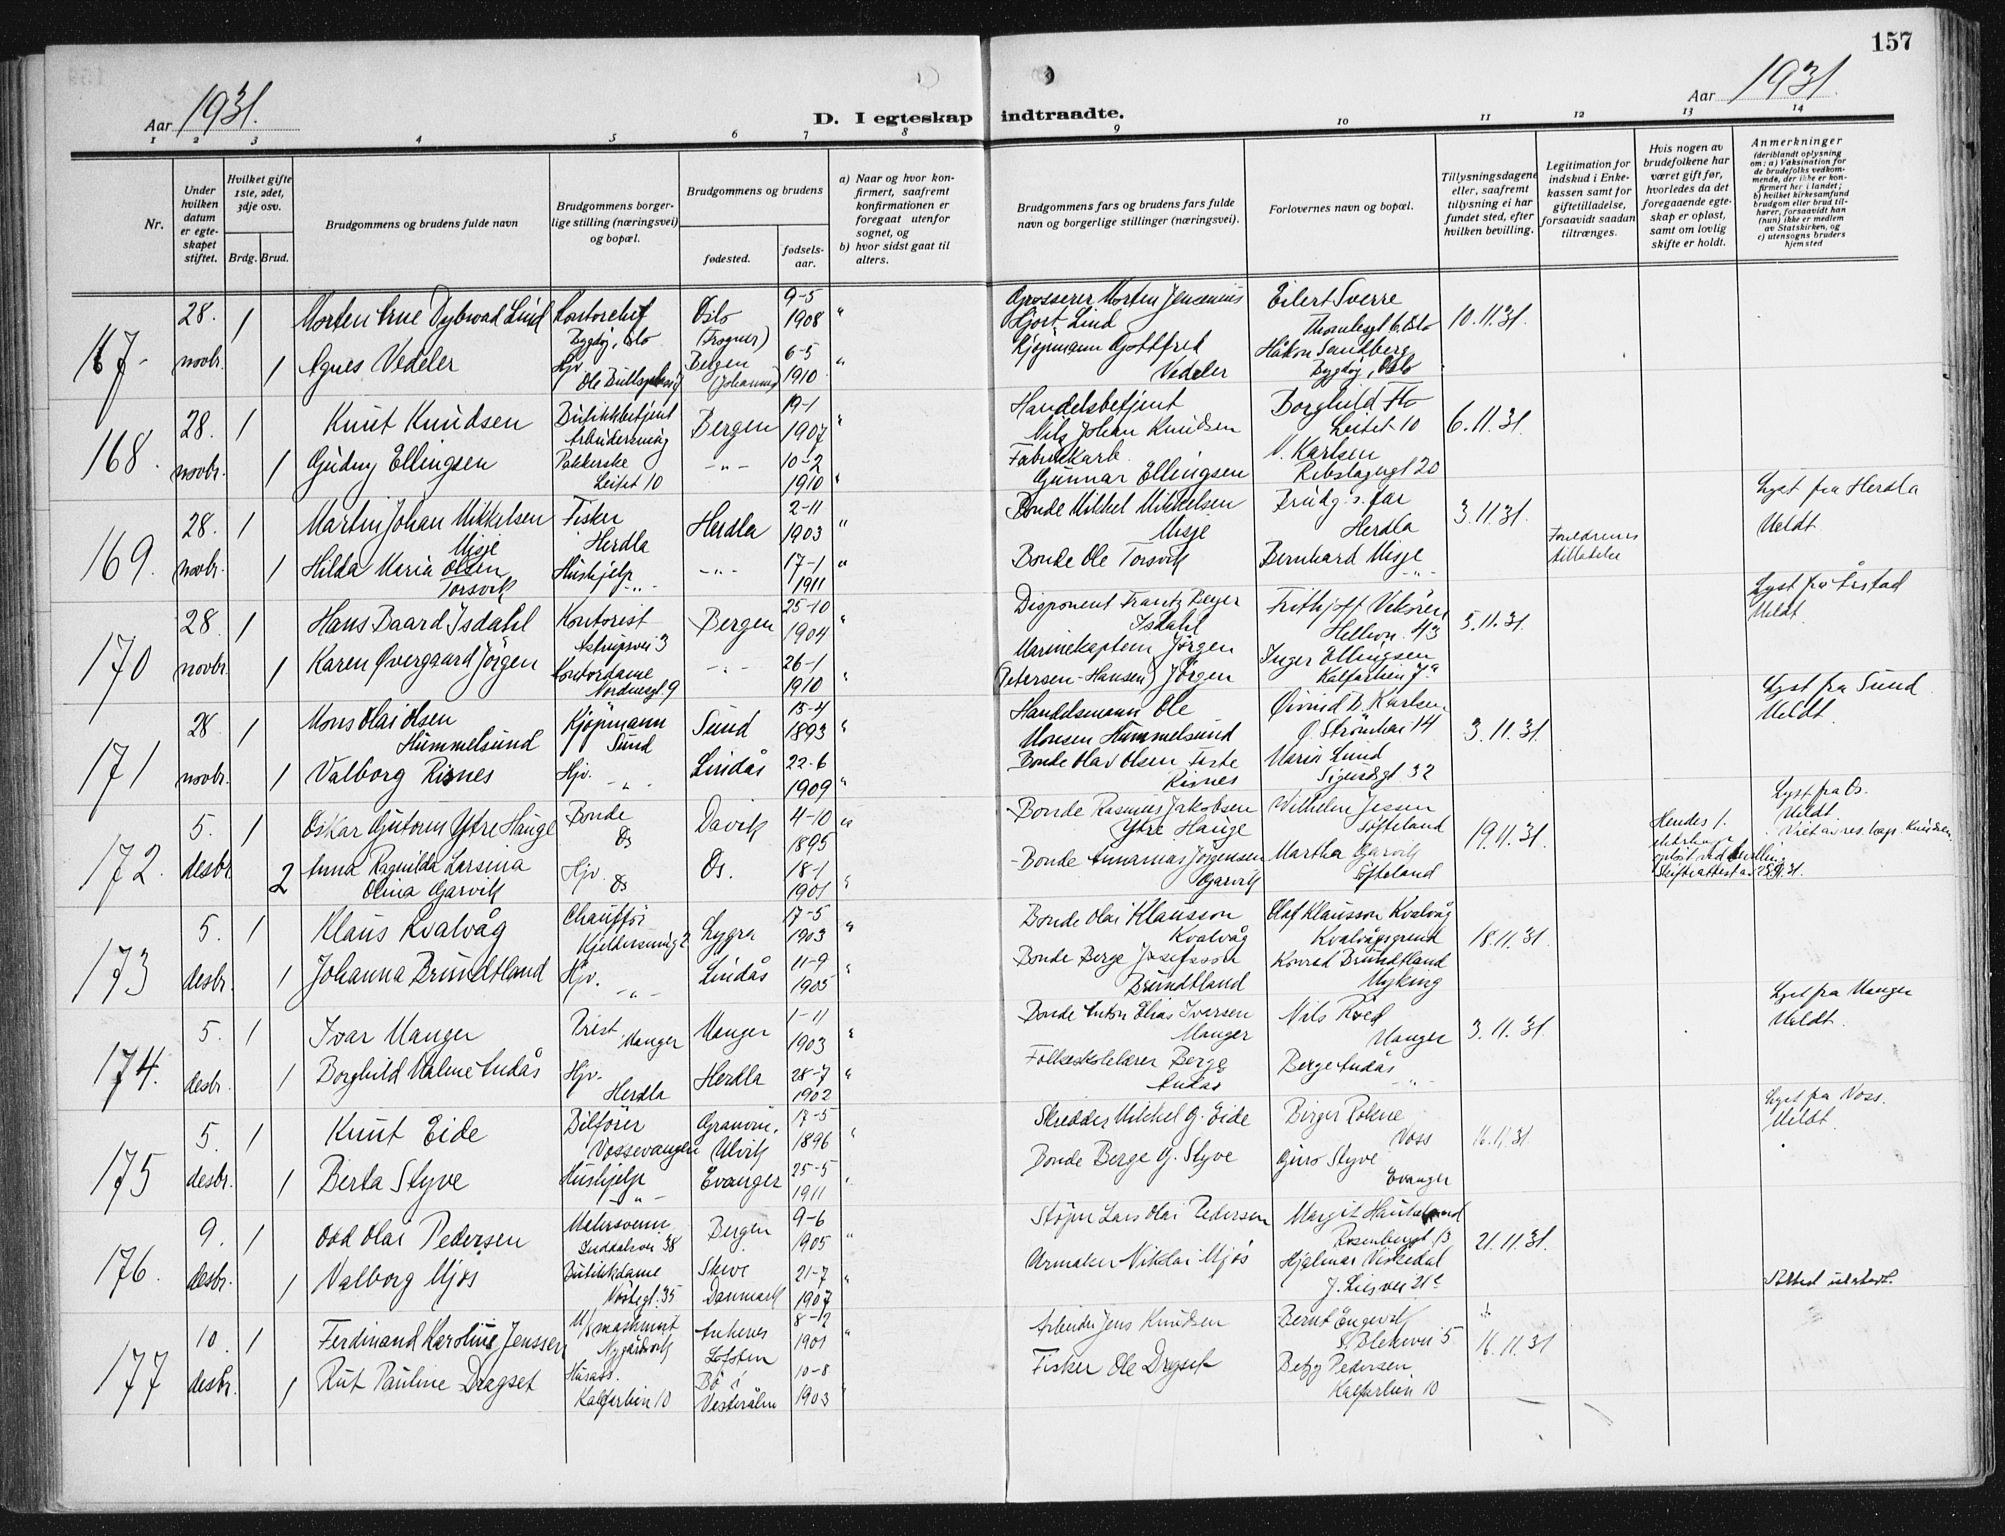 157
Aar 1931.
Aar 1931.
D. I egteskap indtraadte.
1 2 3 4 5 6 7 8 9 10 11 12 13 14
Nr.
Under hvilken datum er egteskapet stiftet.
Hvilket gifte 1ste, 2det, 3dje osv.
Brdg. Brud.
Brudgommens og brudens fulde navn
Brudgommens borgerlige stilling (næringsvei) og bopæl.
Brudgommens og brudens
fødested.
fødselsaar.
a) Naar og hvor konfirmert, saafremt konfirmationen er foregaat utenfor sognet, og
b) hvor sidst gaat til alters.
Brudgommens fars og brudens fars fulde navn og borgerlige stillinger (næringsvei).
Forlovernes navn og bopæl.
Tillysningsdagene eller, saafremt tillysning ei har fundet sted, efter hvilken bevilling.
Legitimation for indskud i Enkekassen samt for giftetilladelse, forsaavidt saadan tiltrænges.
Hvis nogen av brudefolkene har været gift før, hvorledes da det foregaaende egteskap er opløst, samt om lovlig skifte er holdt.
Anmerkninger (deriblandt oplysning om: a) Vaksination for de brudefolks vedkommende, der ikke er konfirmert her i landet; b) hvilket kirkesamfund brudgom eller brud tilhører, forsaavidt han (hun) ikke er medlem av Statskirken, og c) utensogns bruders hjemsted
167 28. novbr. 1 Morten Arne Dybwad Lind Kontorchef Bygdøy, Oslo Oslo (Frogner) 9-5 1908 " Grosserer Morten Jensenius Hjort-Lind Eilert Sverre Oslo 10.11.31.
1 Agnes Vedeler Hjv. Bergen (Johannes) 6-5 1910 " Kjøpmann Gottfred Vedeler Håkon Sandberg Bygdøy, Oslo
168. 28. novbr. 1 Knut Knudsen Butikkbetjent Bergen 19-1 1907 " Handelsbetjent Nils Johan Knudsen Borghild Flo Leitet 10 6.11.31.
1 Gudny Ellingsen Pakkerske Leitet 10 -"- 10-2 1910 " Fabrikkarb. Gunnar Ellingsen V. Karlsen 20
169. 28. novbr. 1 Martin Johan Mikkelsen Misje Fisker Herdla Herdla 2-11 1903 " Bonde Mikkel Mikkelsen Misje Brudg.s. far Herdla 3.11.31. Foreldrenes tilladelse Lyst fra Herdla Ueldt.
1 Hilda Maria Olsen Torsvik Hushjelp -"- -"- 17-1 1911 " Bonde Ole Torsvik Bernhard Misje -"-
170 28. novbr. 1 Hans Baard Isdahl Kontorist Astrupsvei 3 Bergen 25-10 1904 " Disponent Frantz Beyer Isdahl Frithjoff Vikören 43 5.11.31. Lyst fra Årstad Ueldt.
1 Karen Øvergaard Jörgen Kontordame Nordnesgt 9 -"- 26-1 1910 " Marinekaptein Jörgen (Petersen-Hansen) Jörgen Inger Ellingsen Kalfarlien 7a
171 28 novbr. 1 Mons Olai Olsen Hummelsund Kjøpmann Sund Sund 15-4 1893 " Handelsmann Ole Monsen Hummelsund Øivind D. Karlsen 14 3.11.31. Lyst fra Sund Ueldt.
1 Valborg Risnes Hjv. -"- Lindås 22-6 1909 " Bonde Olav Olsen Risnes Maria Lund Sigurdsgt 32
172. 5. desbr. 1 Oskar Gutorm Ytre Hauge Bonde Os Davik 4-10 1895 " Bonde Rasmus Jakobsen Ytre Hauge Wilhelm Jessen Söfteland 19.11.31. Hendes 1. Lyst fra Os. Ueldt.
2 Anna Ragnilda Larsina Olina Gjarvik Hjv. Os Os. 18-1 1901 " Bonde Annanias Jørgensen Gjarvik Martha Gjarvik Söfteland
173 5. desbr. 1 Klaus Kvalvåg Chauffør Lygra 17-5 1903 " Bonde Olai Klausson Kvalvåg Olaf Klausson Kvalvåg Kvalvågsgrend 18.11.31.
1 Johanna Brundtland Hjv. -"- Lindås 11-9 1905 " Bonde Berge Josefsson Brundtland Konrad Brundtland Myking
174. 5. desbr. 1 Ivar Manger Prest Manger Manger 1-11 1903 " Bonde Anton Elias Iversen Manger Nils Manger 3.11.31. Lyst fra Manger Ueldt.
1 Borghild Malene Andås Hjv. Herdla Herdla 28-7 1902 " Folkeskolelærer Berge Andås Berge Andås -"-
175 5. desbr. 1 Knut Eide Bilfører Vossevangen Granvin, Ulvik 17-5 1896 " Skredder Mikkel G. Eide Birger Rokne Voss 16.11.31. Lyst fra Voss. Ueldt.
1 Berta Styve Hushjelp -"- Evanger 25-5 1911 " Bonde Berge G. Styve Guro Styve Evanger
176. 9. desbr. 1 Odd Olai Pedersen Malersvenn 38 Bergen 9-6 1905 " Støper Lars Olai Pedersen Margit Haukeland Rosenbergt. 13 21.11.31.
1 Valborg Mjøs Butikkdame 35 Skive Danmark 21-7 1907 " Urmaker Nikolai Mjøs Hjalmar Viskedal J. Lies vei 21c
177 10. desbr. 1 Ferdinand Karolius Jenssen maskinist 8-12 1901 " Arbeider Jens Knudsen Bernt 5 16.11.31
1 Rut Pauline Dragset Husass. Kalfarlien 10 Bö i Vesterålen 10-8 1903 " Fisker Ole Dragset Betzy Pedersen Kalfarlien 10